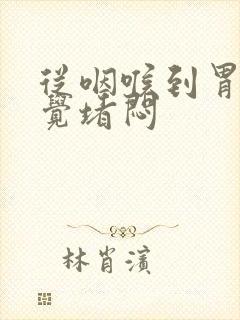 從咽喉到胃
覺堵悶
林肖濱